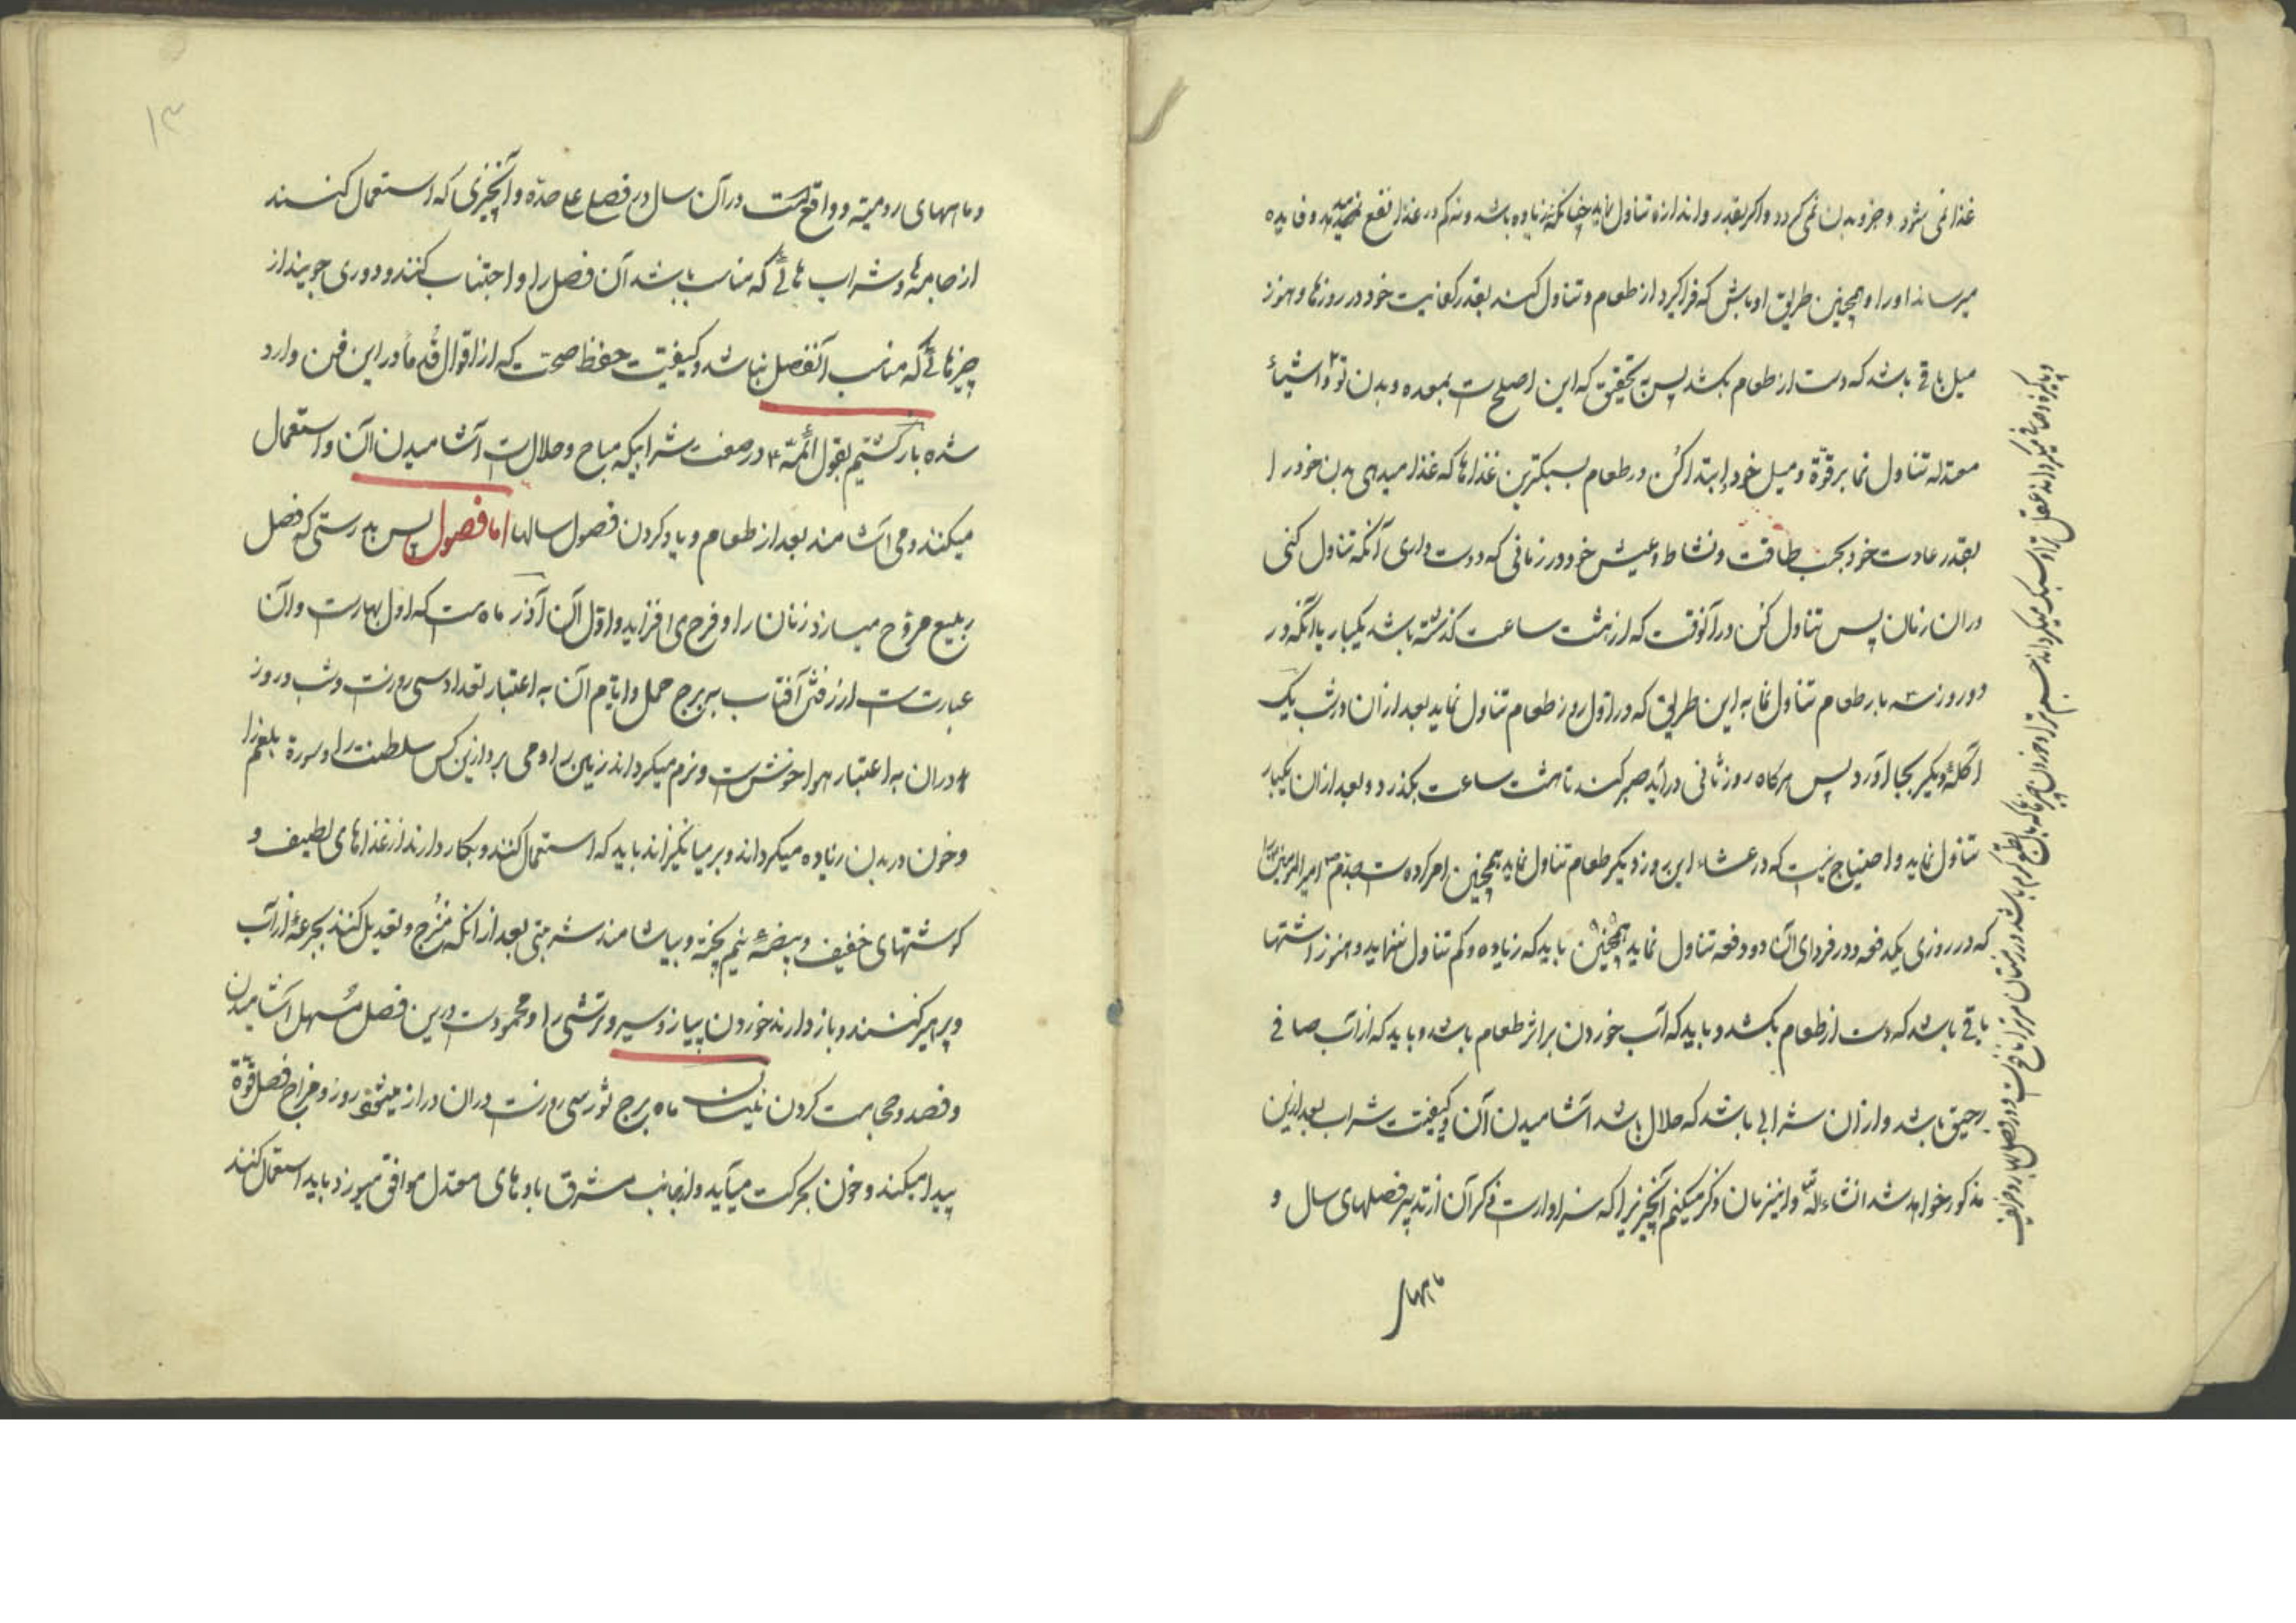 غذا نمی شود و جزو بدن نمی گردد و اگر بقدر و اندازه تناول نماید چنانکه نه زیاده باشد و نه کم در غذا نفع میدهد و فایده
میرساند او را و همچنین طریق او باش که فراگیرد از طعام و تناول کند بقدر کفایت خود در روزها و هنوز
میل باقی باشد که دست از طعام بکشد پس بتحقیق که این اصلح است بمعده و بدن تو و اشیاء
معتدله تناول نما بر قوّة و میل خود ابتدا کن در طعام بسبکترین غذاها که غذا میدهی بدن خود را
بقدر عادت خود بحسب طاقت و نشاط و عیش خود در زمانی که دوست داری آنکه تناول کنی
در ان زمان پس تناول کن در آنوقت که از هشت ساعت گذشته باشد یکبار یا آنکه در
دو روز سه بار طعام تناول نما به این طریق که در اول روز طعام تناول نماید بعد از ان در شب یک
اکلهٔ دیگر بجا آورد پس هرگاه روز ثانی درآید صبر کند تا هشت ساعت بگذرد و بعد از ان یکبار
تناول نماید و احتیاج نیست که در عشاء این روز دیگر طعام تناول نماید همچنین امر کرده است جدّم امیرالمؤمنین را
که در روزی یکدفعه و در فردای آن دو دفعه تناول نماید همچنین باید که زیاده و کم تناول ننماید و هنوز اشتها
باقی باشد که دست از طعام بکشد و باید که آب خوردن بر اثر طعام باشد و باید که از آب صافی
رحیق باشد و از ان شرابی باشد که حلال باشد آشامیدن آن و کیفیت شراب بعد ازین
مذکور خواهد شد انشاءالله و این زمان ذکر میکنم آنچیزیرا که سزاوار است ذکر آن از تدبیر فصلهای سال و
ماههای
و ماههای رومیّه و واقع است در آن سال در فصل علیحدّه و آنچیزی که استعمال کنند
از جامه‌ها و شراب هائی که مناسب باشد آن فصل را و اجتناب کنند و دوری جویند از
چیزهائی که مناسب آنفصل نباشد و کیفیت حفظ صحت که از اقوال قُدما در این فن وارد
شده بازگشتیم بقول ائمّه ع در صفت شرابیکه مباح و حلالست آشامیدن آن و استعمال
میکنند و می آشامند بعد از طعام و یاد کردن فصول سالها اما فصول پس بدرستی که فصل
ربیع مروّح میسازد زنان را و فرح می افزاید و اوّل آن آذر ماه است که اول بهارست و آن
عبارتست از رفتن آفتاب به برج حمل و ایّام آن به اعتبار تعداد سی روزست و شب و روز
دران به اعتبار هوا خوشست و نرم میگرداند زمین را و می پردازد این کس سلطنت را و سورة بلغم را
و خون در بدن زیاده میگرداند و برمیانگیزاند باید که استعمال کنند و بکار دارند از غذاهای لطیف و
گوشتهای خفیف و بیضهٔ نیم پخته و بیاشامند شربتی بعد از آنکه مَزج و تعدیل کنند بجرعهٔ از آب
و پرهیز کنند و باز دارند خوردن پیاز و سیر و ترشی را و محمودست درین فصل مُسهل آشامیدن
و فصد و حجامت کردن نیسان ماه برج ثور سی روزست دران دراز میشود روز و مزاج فصل قوّة
پیدا میکند و خون بحرکت میآید و از جانب مشرق بادهای معتدل موافق میوزد باید استعمال کنند
۱۳